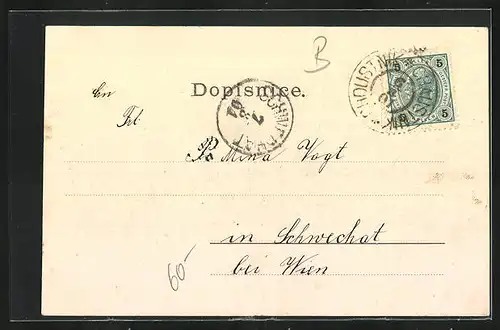 B
5 5
Dopisnice.
Frl.
SCHWECHAT
7
Mina Vogt
in Schwechat
bei Wien
60-